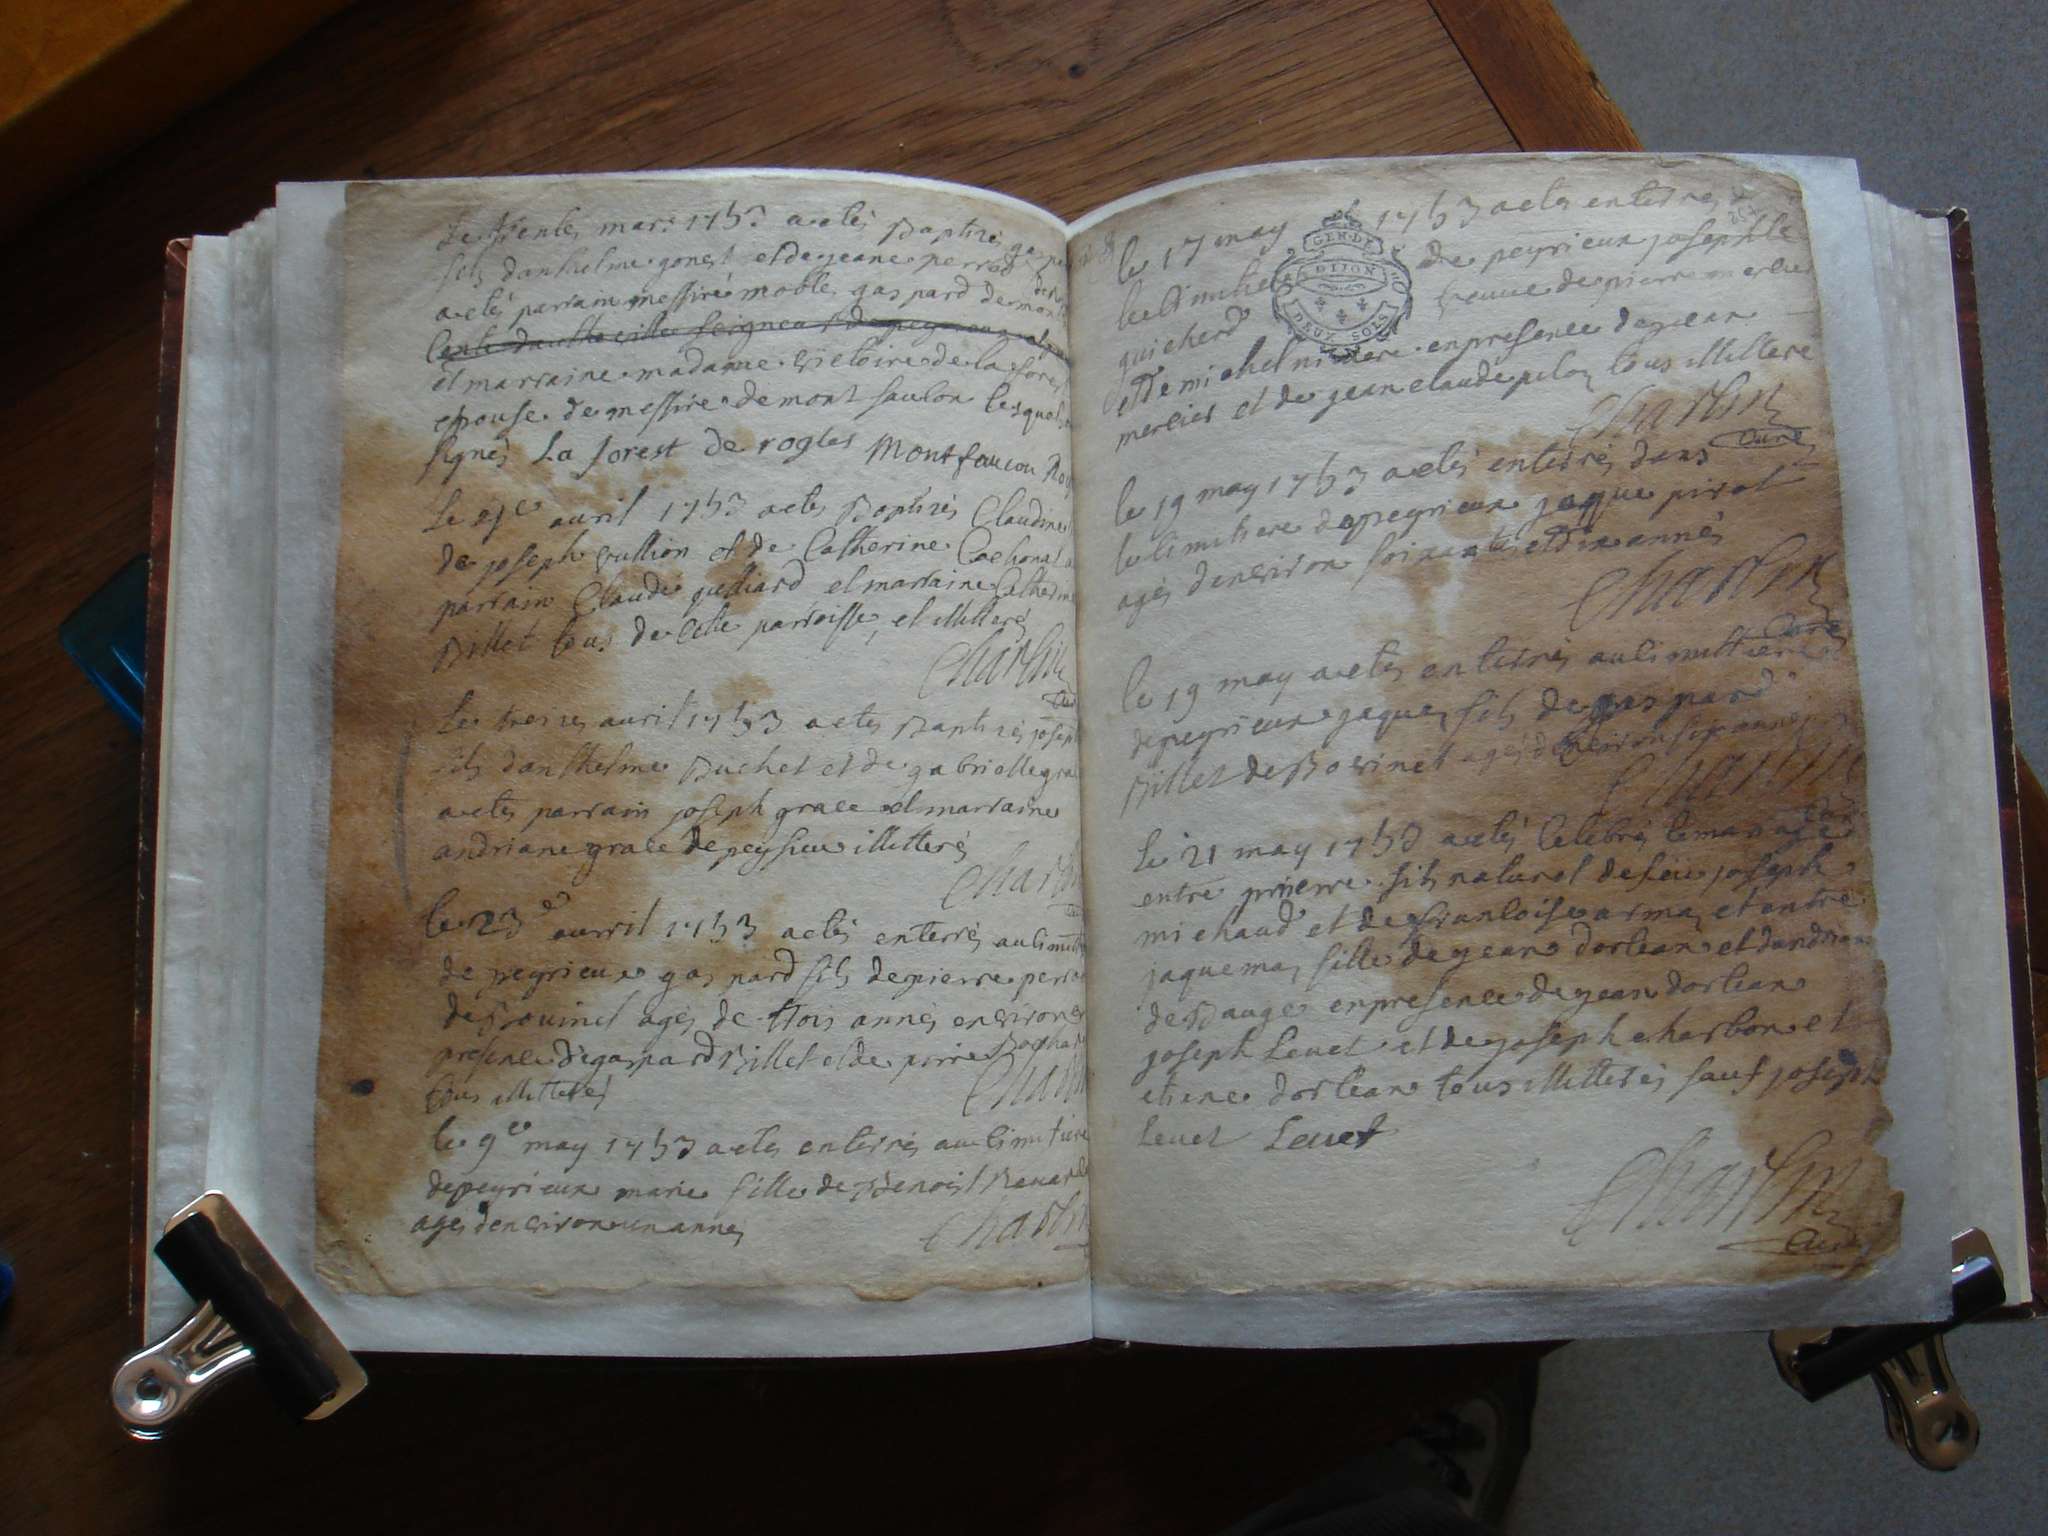 Le trente mars 1753 a etés Baptisés gaspard
fils danthelme gonet et de jeane perrod
a etés parrain messire noble gaspard demont
et marraine madame victoire de la forest
epouse de messire de mont faulon lesquels
signés La forest de rogles Montfaucon
Le avril 1753 a etes Baptisés Claudine
de joseph vullion et de Catherine Cochonat
parrain Claude julliard et marraine Catherine
Billet tous de Cette parroisse, et illiterés
Charlin
Curé
Le treizes avril 1753 a etes Baptisés joseph
fils danthelme Buchet et de gabrielle grace
a etes parrain joseph grace et marraine
andriane grace de peysieu illitterés
Charlin
le 23e avvril 1753 a etés enterrés au Cimitiere
de peyrieux gaspard fils de pierre
de Bovinet agés de trois annés environ en
présence de gaspard Billet et de pierre
tous illitterés
Charlin
le 9e may 1753 a etes enterrés au Cimitiere
de peyrieux marie fille de Benoist
agés denviron un annés
Charlin
le 17 may 1753 a etes enterrés
GEN. DE
DIJON
DEUX SOLS
le Cimitiere de peyrieux josephte
guicherd veuve de pierre mercier
et de michel en presence de jean
mercier et de jean claude pilon tous illittere
Charlin
Curé
le 19 may 1753 a etés enterrés dans
le Cimitiere de peyrieux jaque pirot
agés denviron soixante et dix annés
Charlin
Curé
le 19 may a etes enterrés au Cimittiere
de peyrieux jaques fils de gaspard
Billet de Bovinet agés denviron six annes
Charlin
Curé
Le 21 may 1753 a etés Celebrés le mariage
entre pierre fils naturel de feu joseph
michaud et de francoise armas et entre
jaquemas fille de jean dorlean et dandriane
de Bauge en presence de jean dorlean
joseph Levet et de joseph charbon et
etiene dorlean tous illitterés sauf joseph
Levet Levet
Charlin
Curé